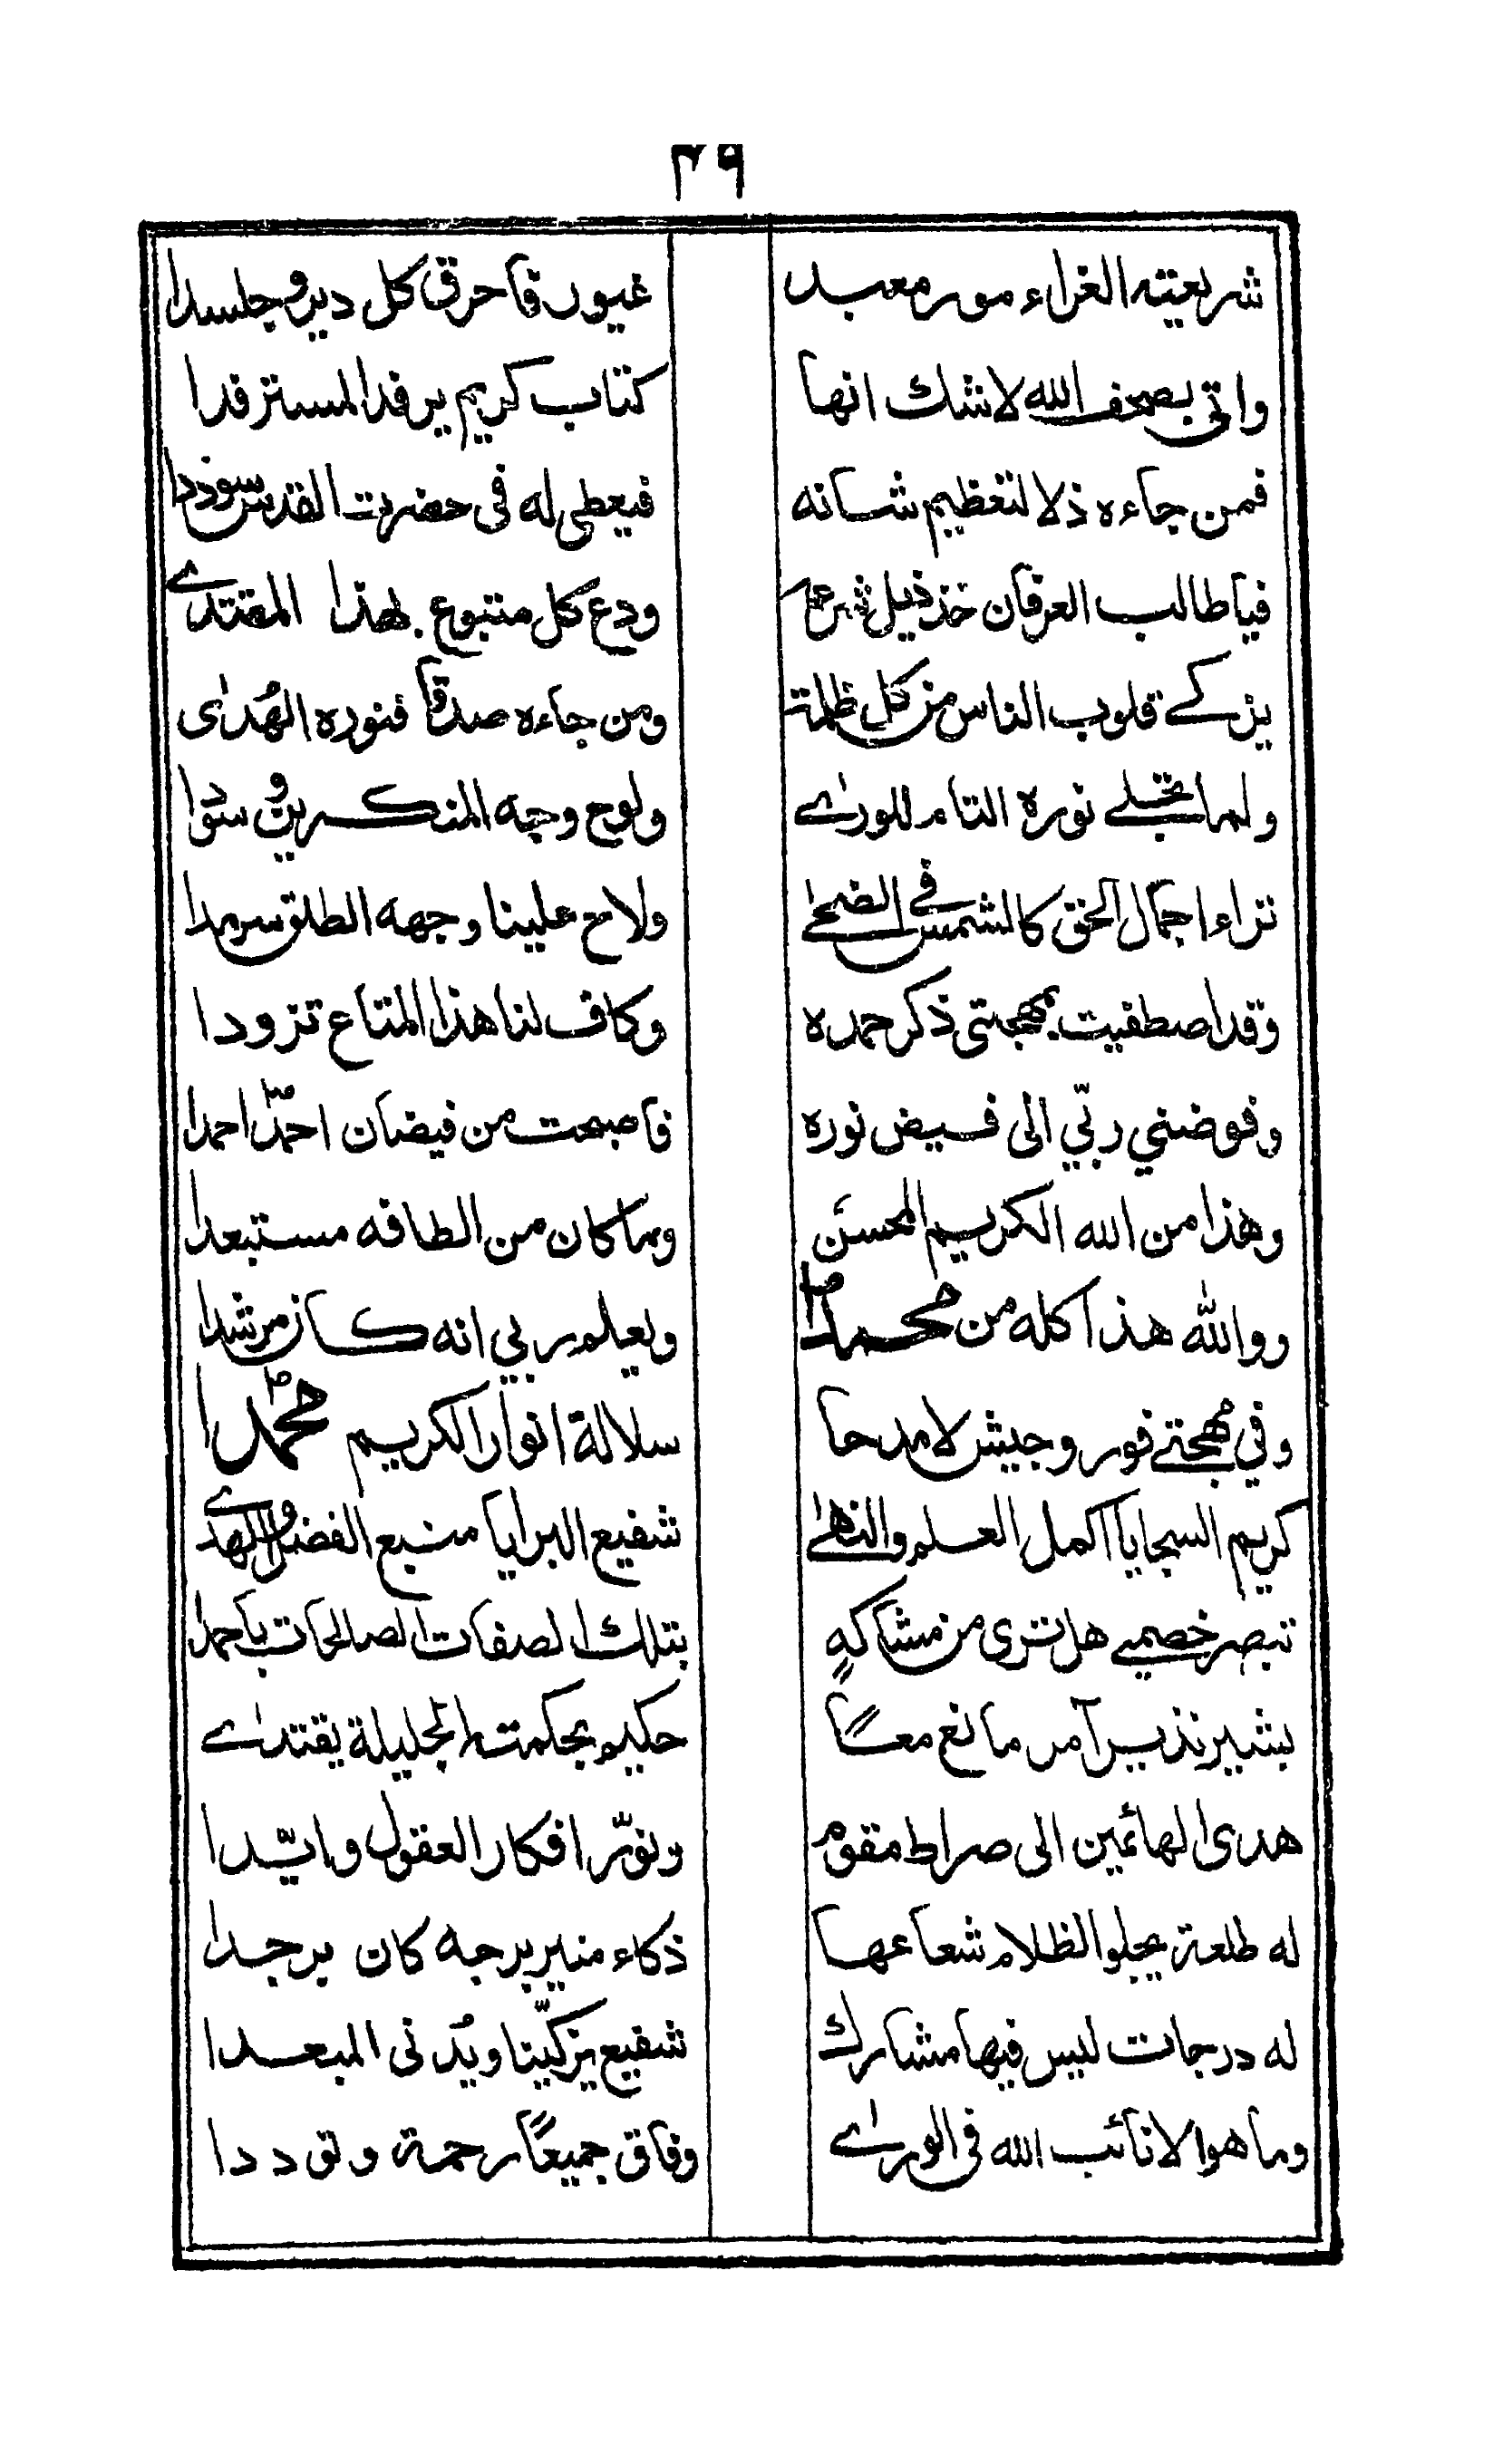 ٣٩
شريعته الغراء مور معبد غيور فاحرق كل دير وجلسدا
واتى بصحف الله لا شك انها كتاب كريم يرفد المسترفدا
فمن جاءه ذلا لتعظيم شانه فيعطى له فى حضرت القدس سوددا
فيا طالب العرفان خذ ذيل شرعه ودع كل متبوع بهذا المقتدے
يزكے قلوب الناس من كل ظلمة ومن جاءه صدقا فنوره الهُدٰى
ولما تجلے نوره التام للورٰے ولوح وجه المنكرين وسوّدا
تراءا جمال الحق كالشمس فى الضحےٰ ولاح علينا وجهه الطلق سرمدا
وقد اصطفيت بمهجتى ذكر حمده وكاف لنا هذا المتاع تزودا
وفوضني ربّي الى فيض نوره فاصبحت من فيضان احمدؐ احمدا
وهذا من الله الكريم المحسن وما كان من الطافه مستبعدا
ووالله هذا كله من محمداؐ ويعلم ربي انه كان مرشدا
وفي مهجتے فور وجيش لامدحا سلالة انوار الكريم محمّداؐ
كريم السجايا اكمل العلم والنهٰے شفيع البرايا منبع الفضل والهدے
تبصر خصميے هل ترى من مشاكهٍ بتلك الصفات الصالحات باحمدا
بشير نذير آمر مانع معًا حكيم بحكمته الجليلة يقتدٰے
هدى الهائمين الى صراط مقوم ونوّر افكار العقول وايّدا
له طلعة يجلو الظلام شعاعها ذكاء منير برجه كان برجدا
له درجات ليس فيها مشارك شفيع يزكّينا ويُدنى المبعدا
وما هو الا نائب الله فى الورٰے وفاق جميعًا رحمة وتوددا